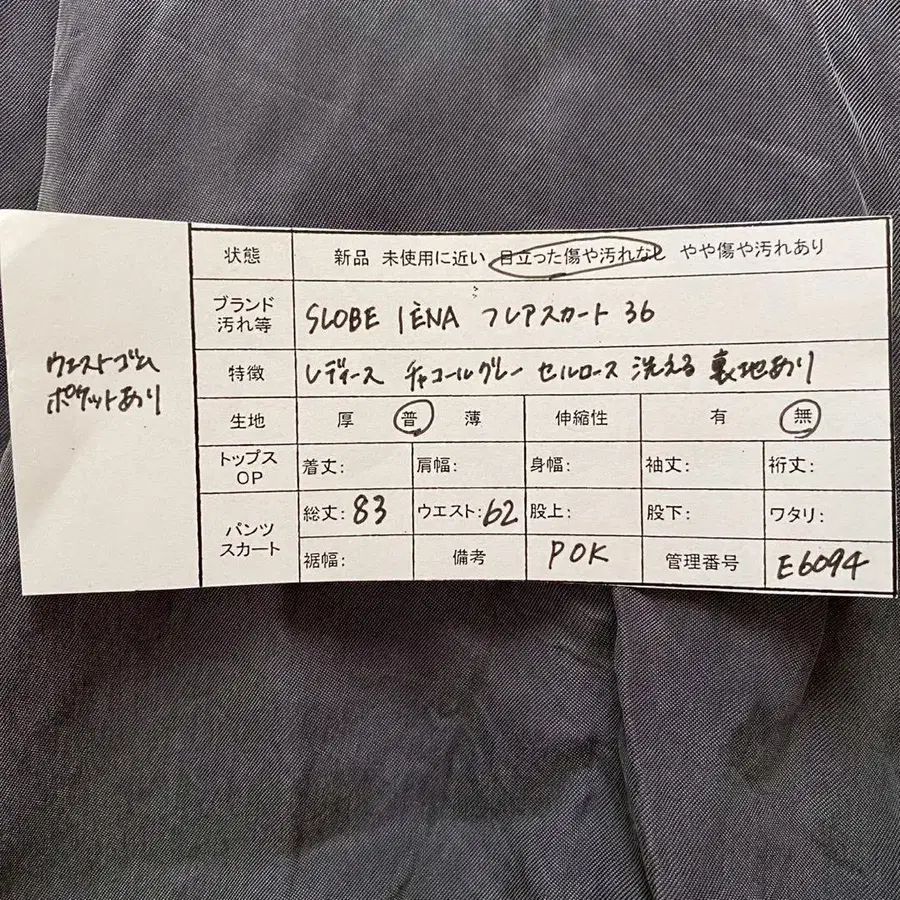 ウエストゴム
ポケットあり
状態 新品 未使用に近い 目立った傷や汚れなし やや傷や汚れあり
ブランド
汚れ等 SLOBE IÈNA フレアスカート 36
特徴 レディース チャコールグレー セルロース 洗える 裏地あり
生地 厚 普 薄 伸縮性 有 無
トップス
OP 着丈: 肩幅: 身幅: 袖丈: 裄丈:
パンツ
スカート 総丈: 83 ウエスト: 62 股上: 股下: ワタリ:
裾幅: 備考 POK 管理番号 E6094